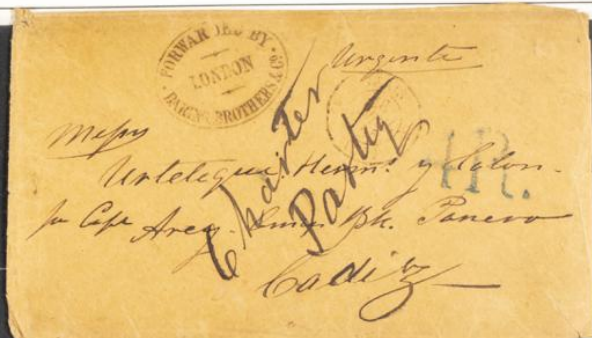 FORWARDED BY
LONDON
BARING BROTHERS & Co.
Urgente
Messrs
Urtetegui Herms. y Colon
4R.
pr Capt Areg Bk.
Cadiz
Charter
Party